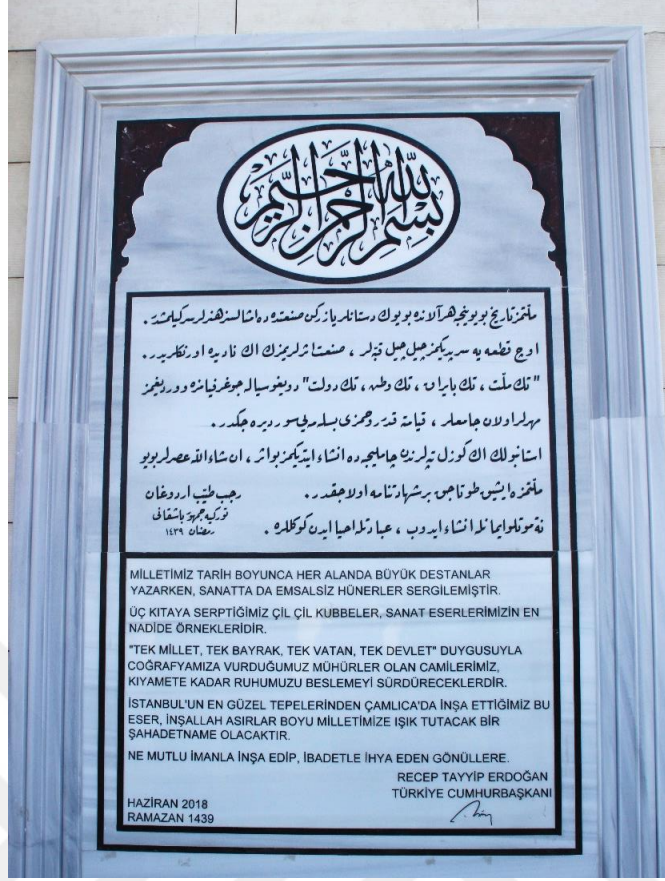 بسم الله الرحمن الرحيم
ملتمز تاريخ بويونجه هر آلانده بويوك دستانلر يازركن صنعتده ده امثالسز هنرلر سركيلمشدر.
اوچ قطعه يه سرپديكمز چيل چيل قبه لر ، صنعت اثرلريمزك اك ناديده اورنكلريدر.
"تك ملت ، تك بايراق ، تك وطن ، تك دولت" دويغوسيله جوغرفيامزه ووردیغمز
مهرلر اولان جامعلر ، قيامته قدر روحمزى بسله مه يى سورديره جكدر.
استانبولك اك كوزل تپه لرندن چامليجه ده انشاء ايتديكمز بو اثر ، ان شاء الله عصرلر بويو
ملتمزه ايشيق طوتاجق بر شهادتنامه اولاجقدر.
نه موتلو ايمانله انشاء ايدوب ، عبادتله احيا ايدن كوكللره.
رجب طيب اردوغان
توركيه جمهور باشقانى
رمضان ١٤٣٩
MİLLETİMİZ TARİH BOYUNCA HER ALANDA BÜYÜK DESTANLAR
YAZARKEN, SANATTA DA EMSALSİZ HÜNERLER SERGİLEMİŞTİR.
ÜÇ KITAYA SERPTİĞİMİZ ÇİL ÇİL KUBBELER, SANAT ESERLERİMİZİN EN
NADİDE ÖRNEKLERİDİR.
"TEK MİLLET, TEK BAYRAK, TEK VATAN, TEK DEVLET" DUYGUSUYLA
COĞRAFYAMIZA VURDUĞUMUZ MÜHÜRLER OLAN CAMİLERİMİZ,
KIYAMETE KADAR RUHUMUZU BESLEMEYİ SÜRDÜRECEKLERDİR.
İSTANBUL'UN EN GÜZEL TEPELERİNDEN ÇAMLICA'DA İNŞA ETTİĞİMİZ BU
ESER, İNŞALLAH ASIRLAR BOYU MİLLETİMİZE IŞIK TUTACAK BİR
ŞAHADETNAME OLACAKTIR.
NE MUTLU İMANLA İNŞA EDİP, İBADETLE İHYA EDEN GÖNÜLLERE.
RECEP TAYYİP ERDOĞAN
TÜRKİYE CUMHURBAŞKANI
HAZİRAN 2018
RAMAZAN 1439